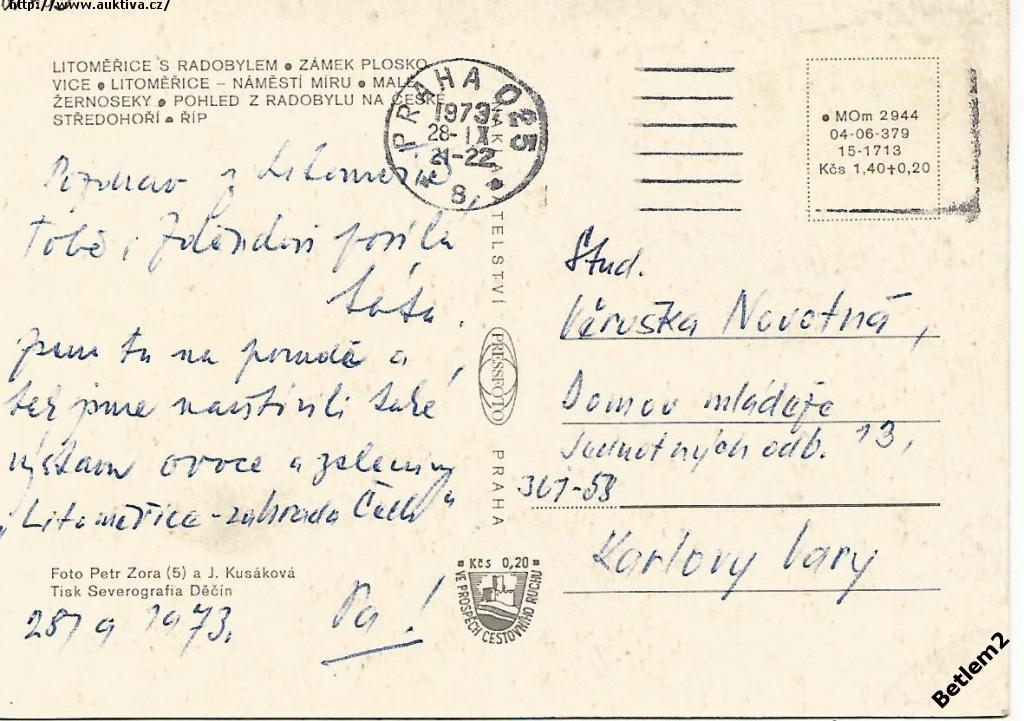 http://www.auktiva.cz/
LITOMĚŘICE S RADOBYLEM • ZÁMEK PLOSKO-
VICE • LITOMĚŘICE – NÁMĚSTÍ MÍRU • MALÉ
ŽERNOSEKY • POHLED Z RADOBYLU NA ČESKÉ
STŘEDOHOŘÍ • ŘÍP
PRAHA 025
1973
28-IX
21-22
8
• MOm 2944
04-06-379
15-1713
Kčs 1,40+0,20
Pozdrav z Litoměřic,
Tobě i posílá
táta.
Jsem tu na poradě a
tak jsme navštívili také
výstavu ovoce a zeleniny
„Litoměřice-zahrada Čech"
Pa!
28/9 1973.
Foto Petr Zora (5) a J. Kusáková
Tisk Severografia Děčín
NAKLADATELSTVÍ
PRESSFOTO
PRAHA
Kčs 0,20
VE PROSPĚCH CESTOVNÍHO RUCHU
Stud.
Věruška Novotná,
Domov mládeže
Jednotných odb. 13,
Karlovy Vary
Betlem2